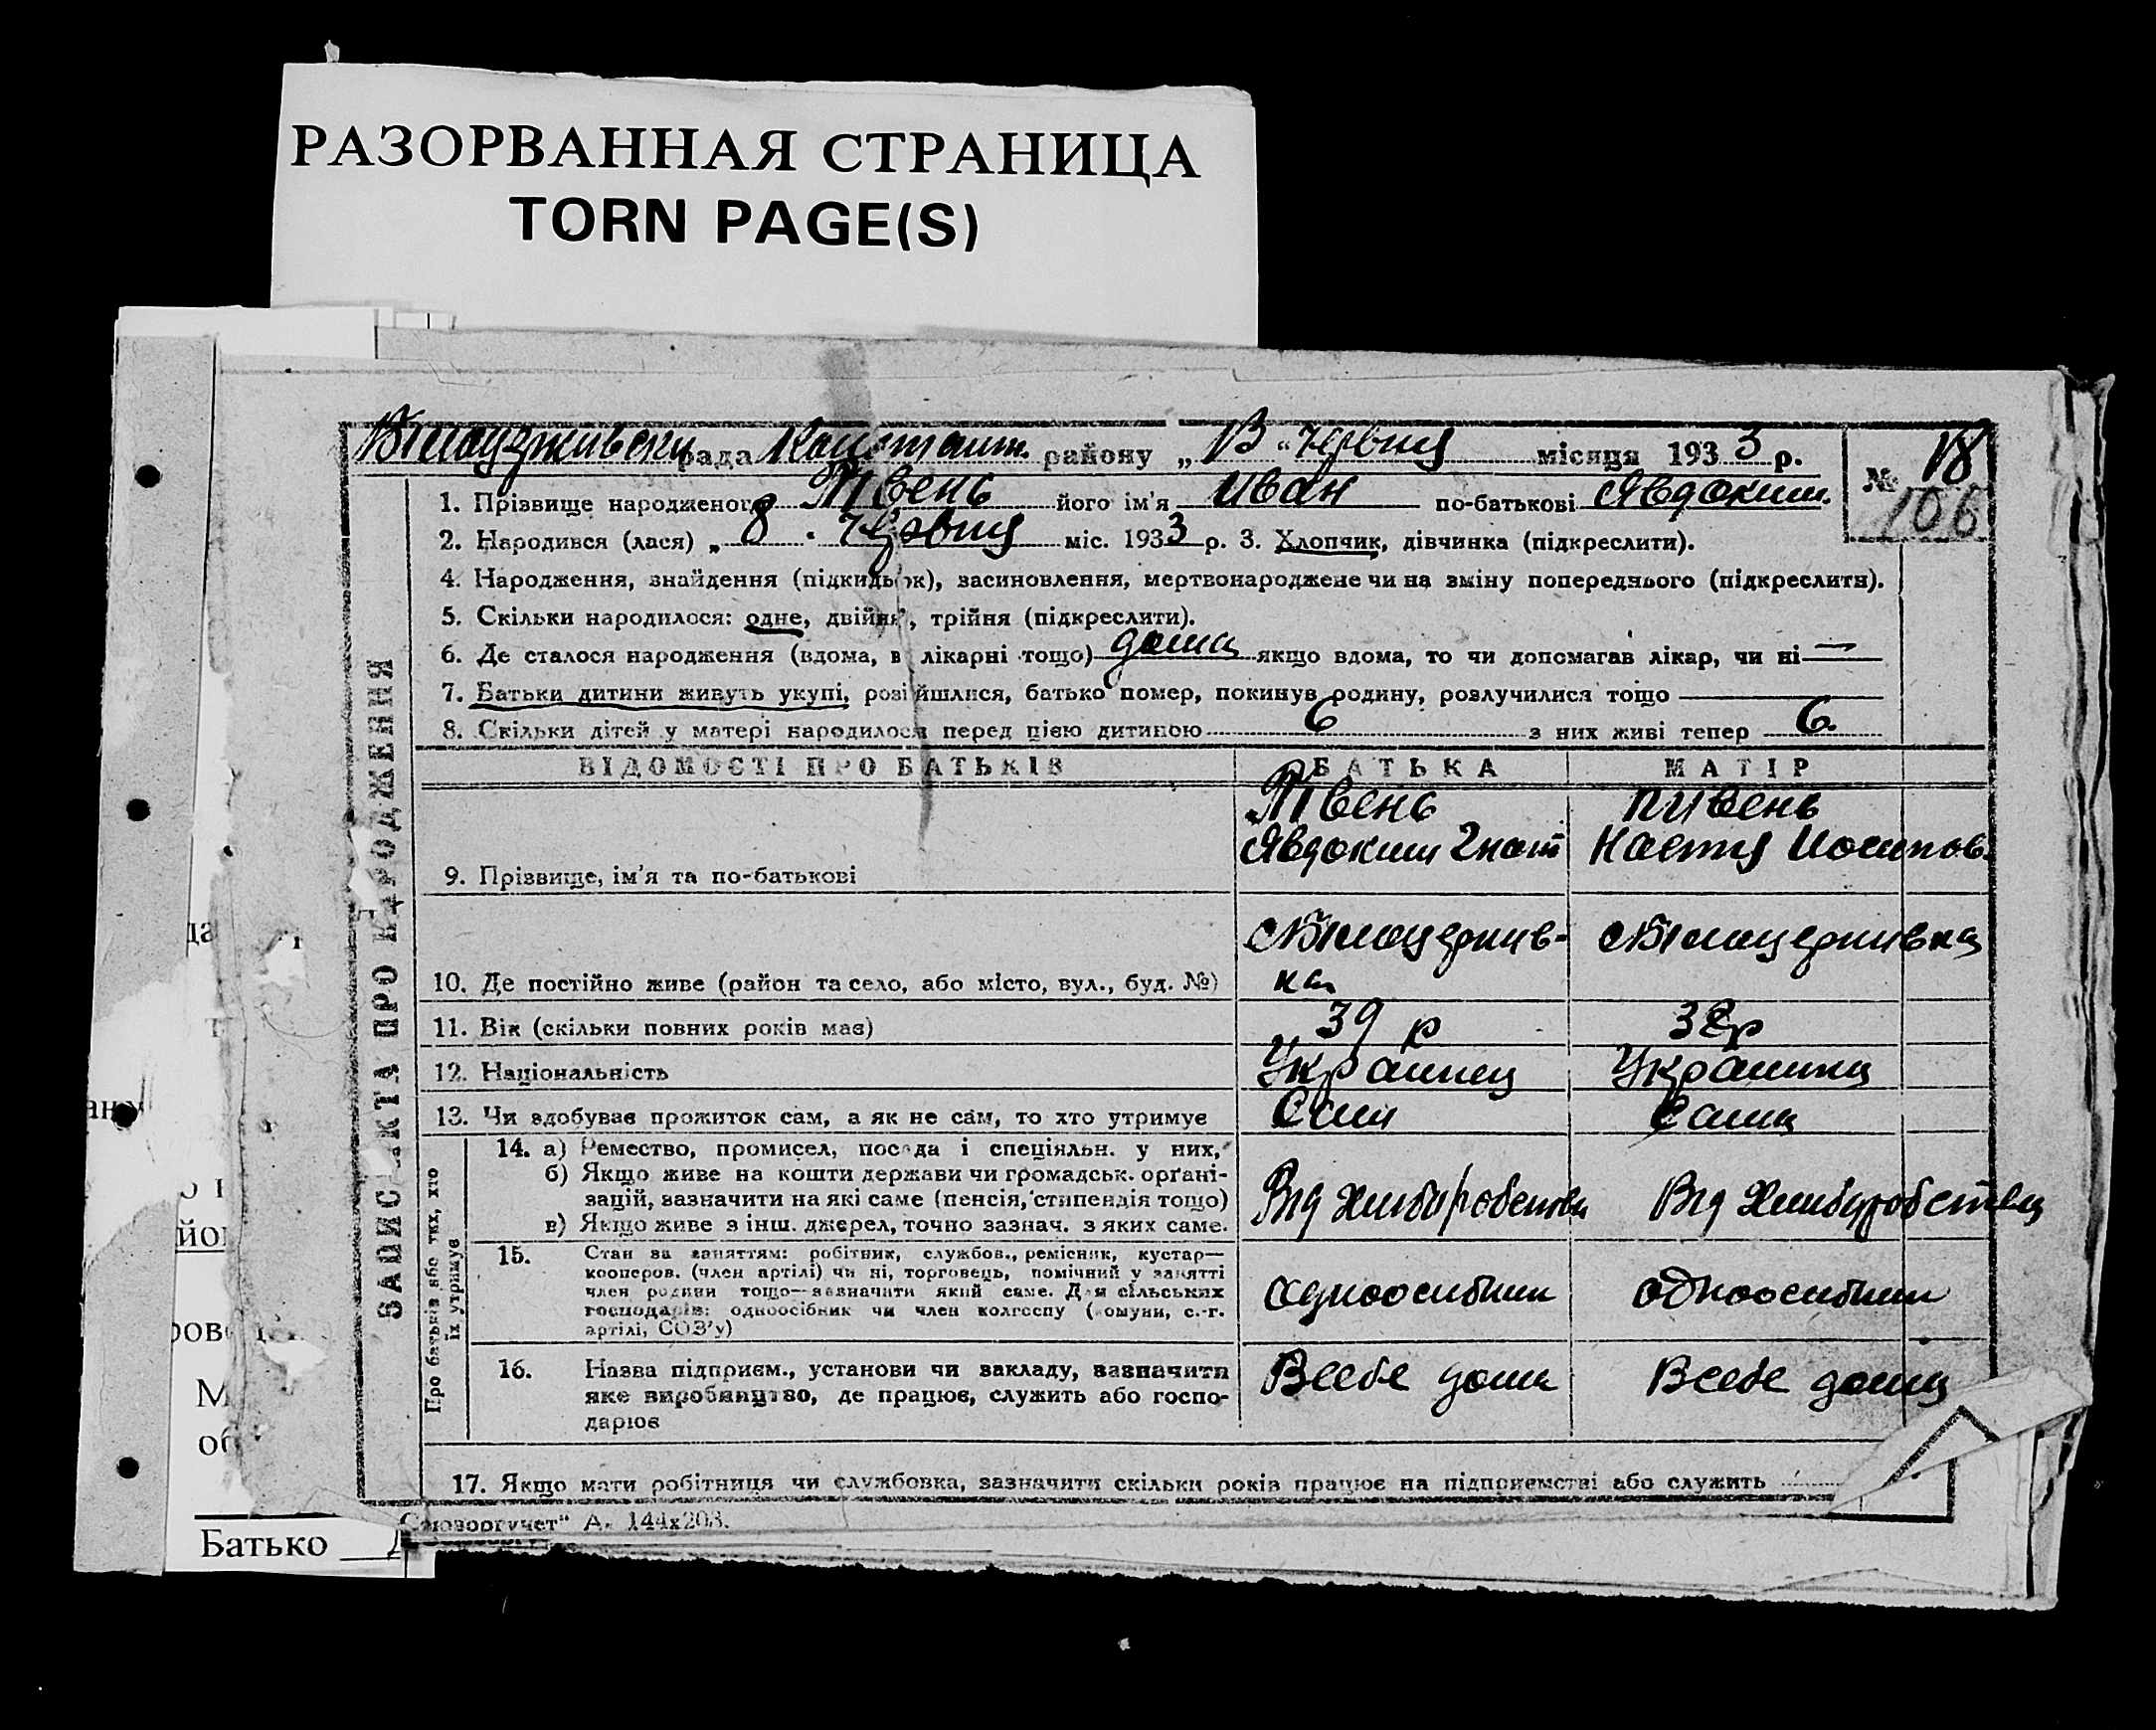 РАЗОРВАННАЯ СТРАНИЦА
TORN PAGE(S)
рада Констант. району „ 13 “ Червня місяця 1933 р.
№ 18
106
1. Прізвище народженого Півень його ім'я Иван по-батькові Явдоким.
2. Народився (лася) „ 8 . Червня міс. 1933 р. 3. Хлопчик, дівчинка (підкреслити).
4. Народження, знайдення (підкидьок), засиновлення, мертвонароджене чи на зміну попереднього (підкреслити).
5. Скільки народилося: одне, двійня, трійня (підкреслити).
6. Де сталося народження (вдома, в лікарні тощо) дома якщо вдома, то чи допомагав лікар, чи ні —
7. Батьки дитини живуть укупі, розійшлися, батько помер, покинув родину, розлучилися тощо
8. Скільки дітей у матері народилося перед цією дитиною 6 з них живі тепер 6.
ЗАПИС АКТА ПРО НАРОДЖЕННЯ
ВІДОМОСТІ ПРО БАТЬКІВ БАТЬКА МАТІР
Півень пивень
Явдоким Гнат Настя Иосипов.
9. Прізвище, ім'я та по-батькові
10. Де постійно живе (район та село, або місто, вул., буд. №)
11. Вік (скільки повних років має) 39 р 38р
12. Національність Украинец Украинка
13. Чи здобуває прожиток сам, а як не сам, то хто утримує Сам Сама
Про батька або тих, хто їх утримує
14. а) Ремество, промисел, посада і спеціяльн. у них,
б) Якщо живе на кошти держави чи громадськ. органі-
зацій, зазначити на які саме (пенсія, стипендія тощо)
в) Якщо живе з інш. джерел, точно зазнач. з яких саме.
Від Хлиборобства Від Хлиборобства
15. Стан за заняттям: робітник, службов., ремісник, кустар—
кооперов. (член артілі) чи ні, торговець, помічний у занятті
член родини тощо—зазначити який саме. Для сільських
господарів: одноосібник чи член колгоспу (комуни, с.-г.
артілі, СОЗ'у)
одноосибник одноосибник
16. Назва підприєм., установи чи закладу, зазначити
яке виробництво, де працює, служить або госпо-
дарює
Всебе дома Всебе дома
17. Якщо мати робітниця чи службовка, зазначити скільки років працює на підприємстві або служить
Союзоргучет“ А. 144х203.
Батько